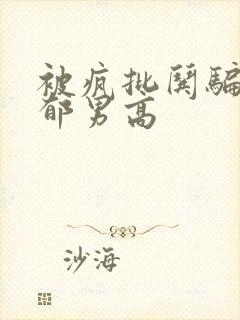 被疯批闋骗
郁男高
沙海